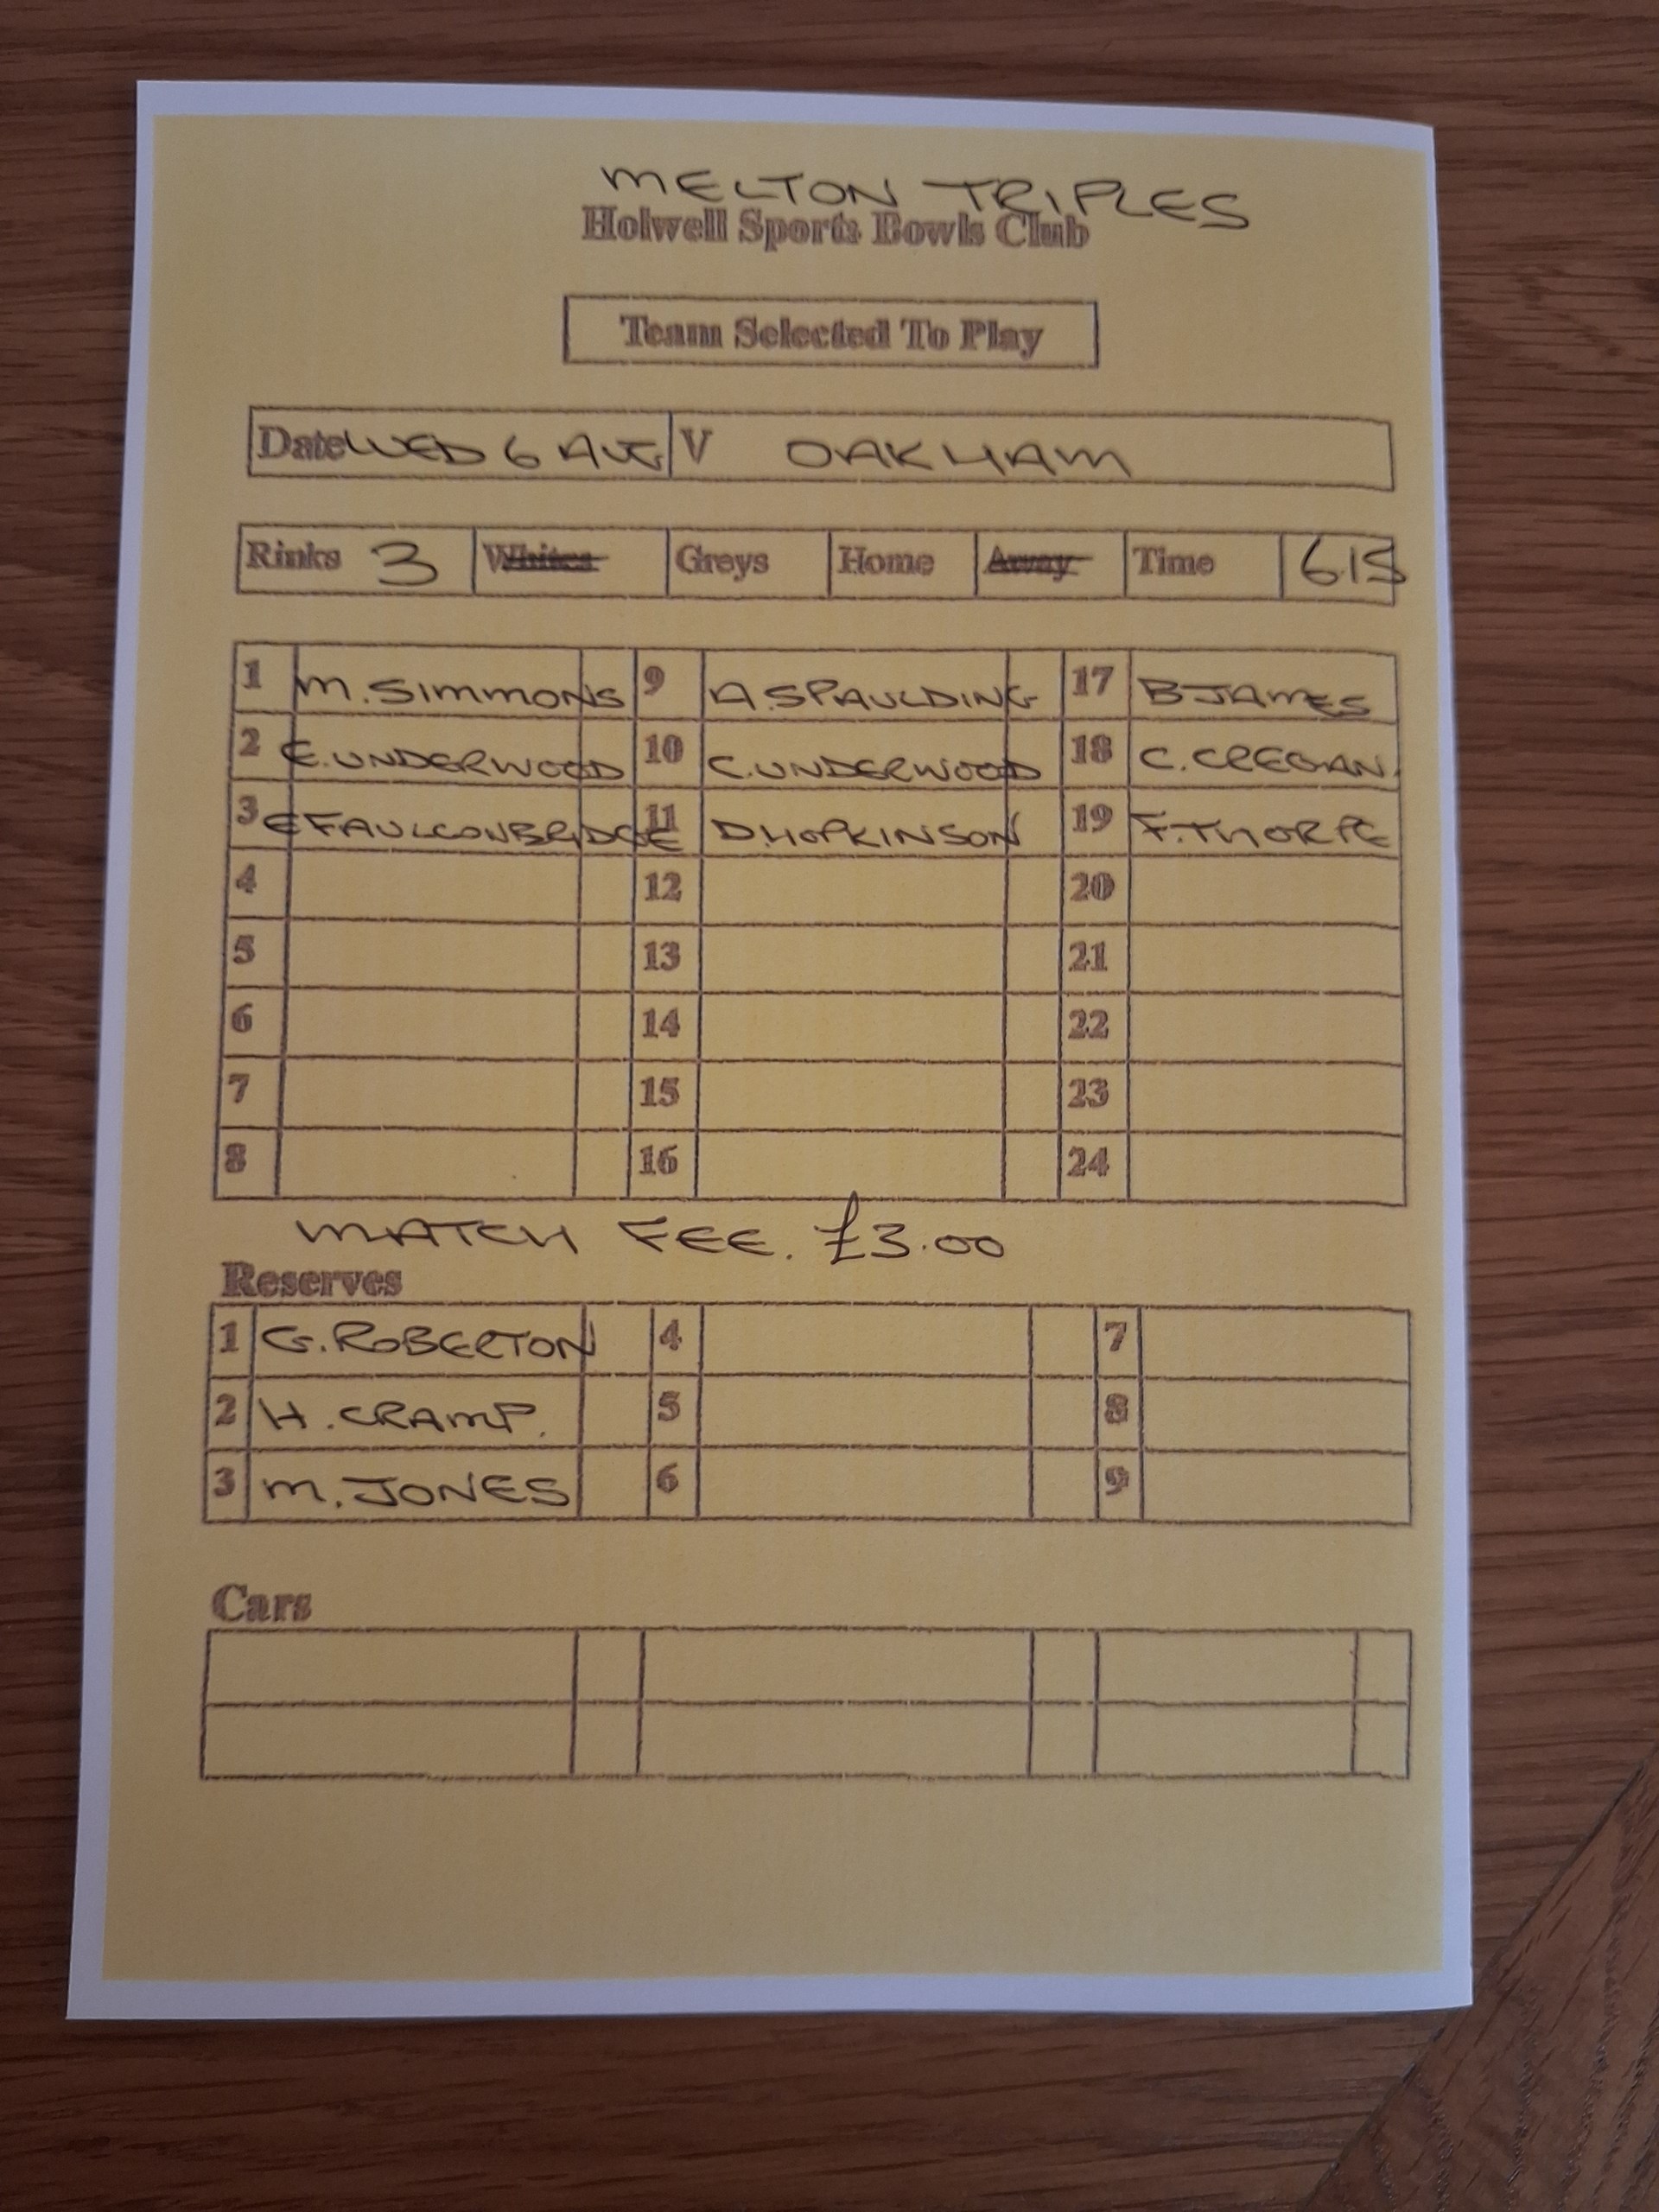 MELTON TRIPLES
Holwell Sports Bowls Club
Team Selected To Play
Date WED 6 AUG V OAKHAM
Rinks 3 Whites Greys Home Away Time 6.15
1 M. SIMMONS 9 A. SPAULDING 17 B JAMES
2 E. UNDERWOOD 10 C. UNDERWOOD 18 C. CREGAN.
3 E FAULCONBRIDGE 11 D. HOPKINSON 19 F. THORPE
4 12 20
5 13 21
6 14 22
7 15 23
8 16 24
MATCH FEE. £3.00
Reserves
1 G. ROBERTON 4 7
2 H. CRAMP. 5 8
3 M. JONES 6 9
Cars